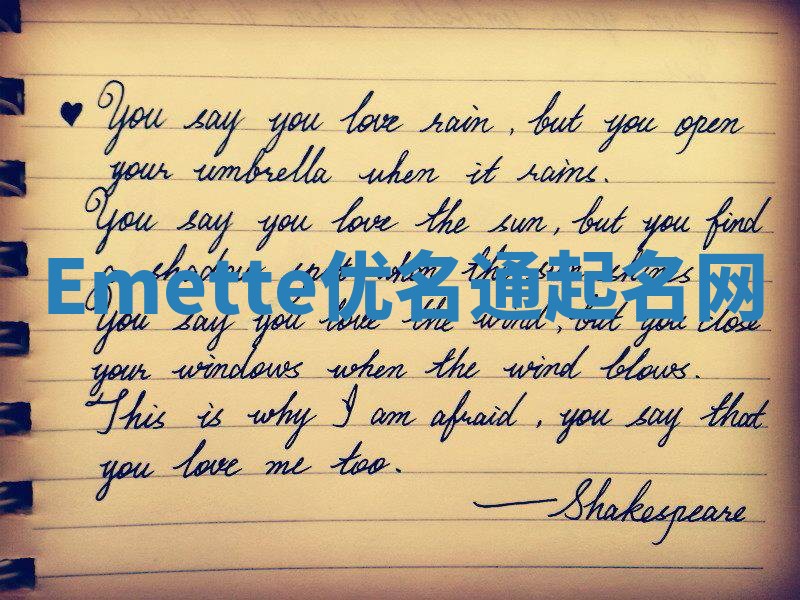 ♥ You say you love rain, but you open
your umbrella when it rains.
You say you love the sun, but you find
a shadow spot when the sun shines
Emette优名通起名网
You say you love the wind, but you close
your windows when the wind blows.
This is why I am afraid, you say that
you love me too.
—Shakespeare